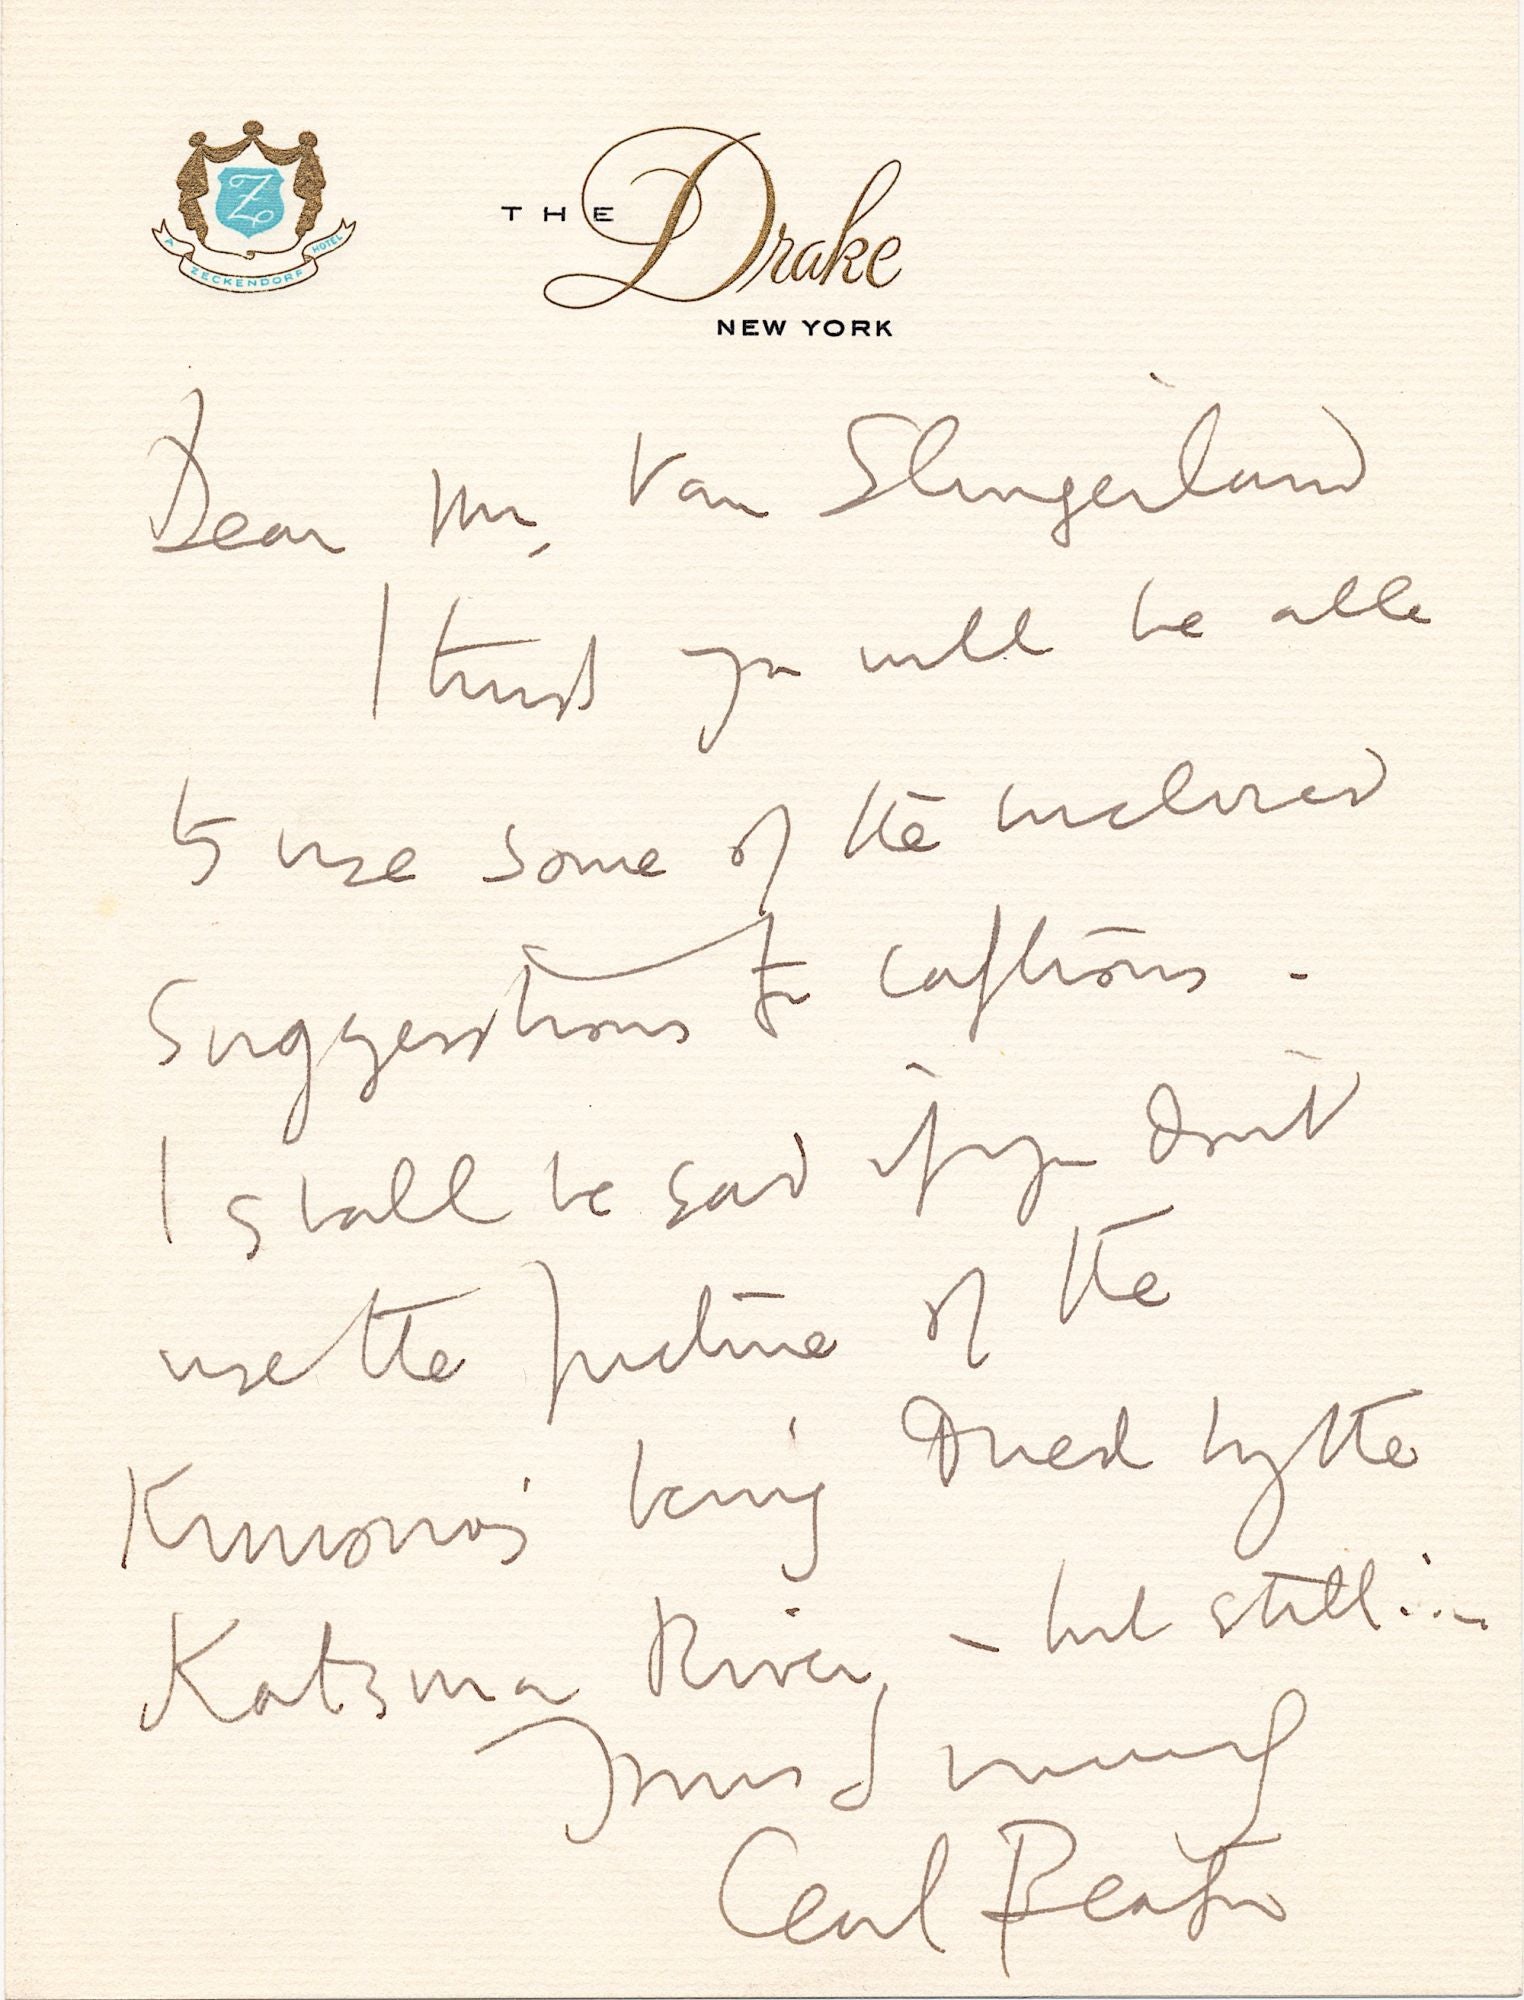 Z
A ZECKENDORF HOTEL
THE Drake
NEW YORK
Dear Mr, Van Slingerland
I trust you will be able
to use some of the inclosed
Suggestions for captions.
I shall be sad if you don't
use the picture of the
Kimonos being dried by the
Katsura River, - but still...
Yours Sincerely
Cecil Beaton